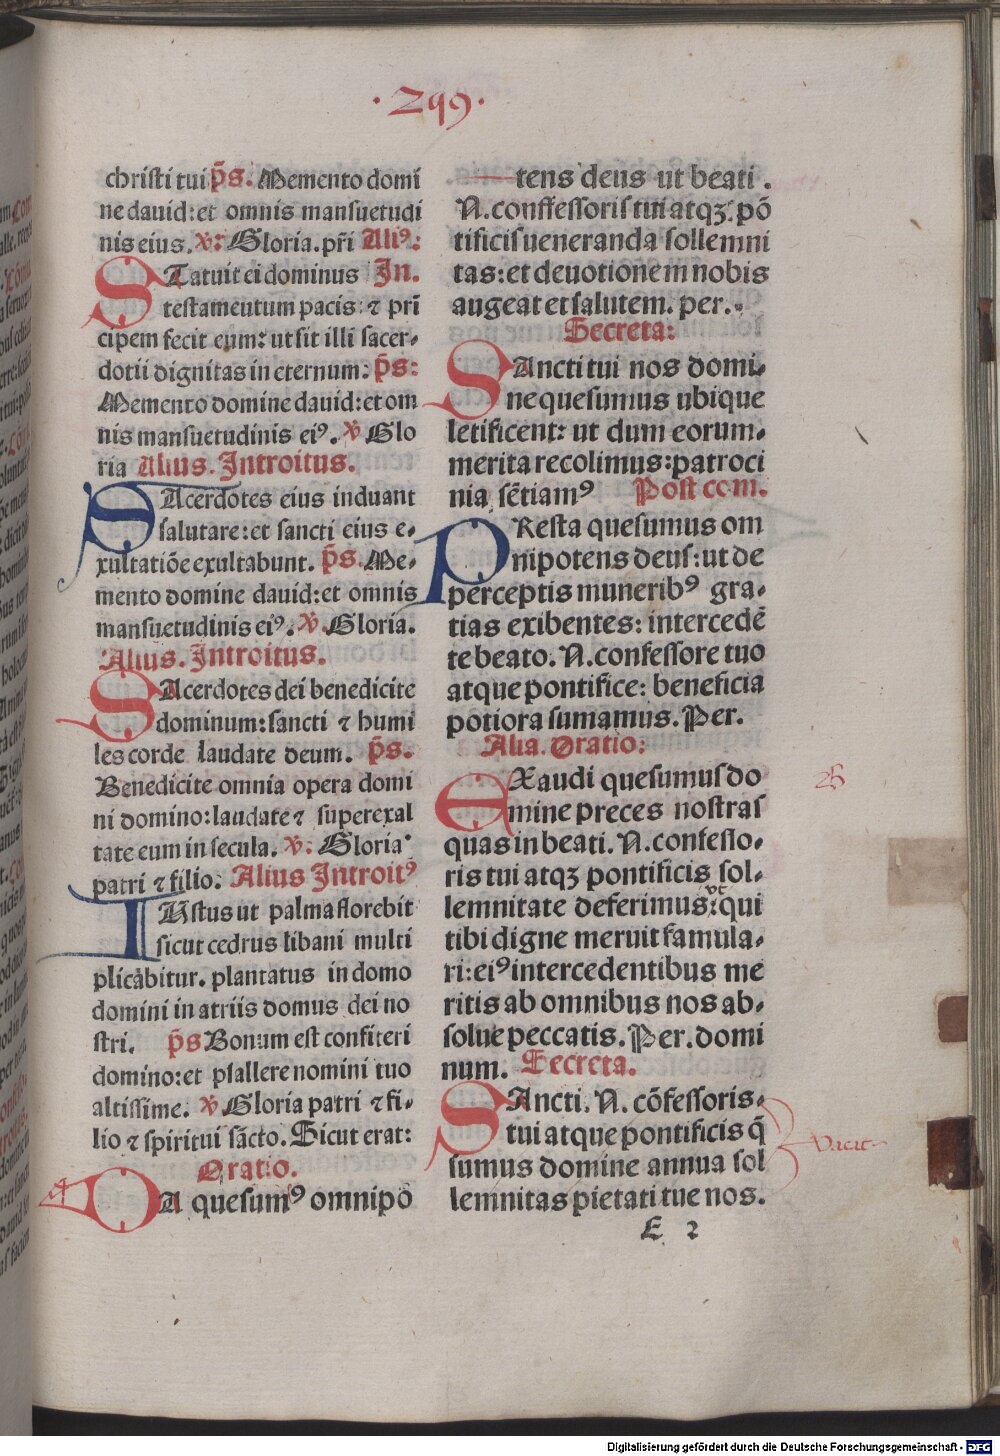 · 299 ·
christi tui p̄s. Memento domi
ne dauid: et omnis mansuetudi
nis eius. v: Gloria. pr̄i Ali⁹:
STatuit ei dominus In.
testamentum pacis: ⁊ pri
cipem fecit eum: ut sit illi sacer-
dotii dignitas in eternum: p̄s:
Memento domine dauid: et om
nis mansuetudinis ei⁹. v Glo
ria Alius. Introitus.
SAcerdotes eius induant
salutare: et sancti eius e-
xultatiōe exultabunt. p̄s. Me-
mento domine dauid: et omnis
mansuetudinis ei⁹. v. Gloria.
Alius. Introitus.
SAcerdotes dei benedicite
dominum: sancti ⁊ humi
les corde laudate deum. p̄s.
Benedicite omnia opera domi
ni domino: laudate ⁊ superexal
tate eum in secula. v: Gloria
patri ⁊ filio: Alius Introit⁹
IUstus ut palma florebit
sicut cedrus libani multi
plicabitur. plantatus in domo
domini in atriis domus dei no
stri. p̄s Bonum est confiteri
domino: et psallere nomini tuo
altissime. v Gloria patri ⁊ fi-
lio ⁊ spiritui sācto. Sicut erat:
Oratio.
DA quesum⁹ omnipō
tens deus ut beati .
N. conffessoris tui atqꝫ. pō
tificis ueneranda sollemni
tas: et deuotionem nobis
augeat et salutem. per.
Secreta:
SAncti tui nos domi-
ne quesumus ubique
letificent: ut dum eorum-
merita recolimus: patroci
nia sētiam⁹ Post com.
PResta quesumus om
nipotens deus: ut de
perceptis munerib⁹ gra-
tias exibentes: intercedē
te beato. N. confessore tuo
atque pontifice: beneficia
potiora sumamus. Per.
Alia. Oratio:
EXaudi quesumus do
mine preces nostras
quas in beati. N. confesso-
ris tui atqꝫ pontificis sol-
lemnitate deferimus: vt qui
tibi digne meruit famula-
ri: ei⁹ intercedentibus me
ritis ab omnibus nos ab-
solue peccatis. Per. domi
num. Secreta.
SAncti. N. cōfessoris-
tui atque pontificis q̄
sumus domine annua sol
lemnitas pietati tue nos.
vacat
E 2
Digitalisierung gefördert durch die Deutsche Forschungsgemeinschaft - DFG